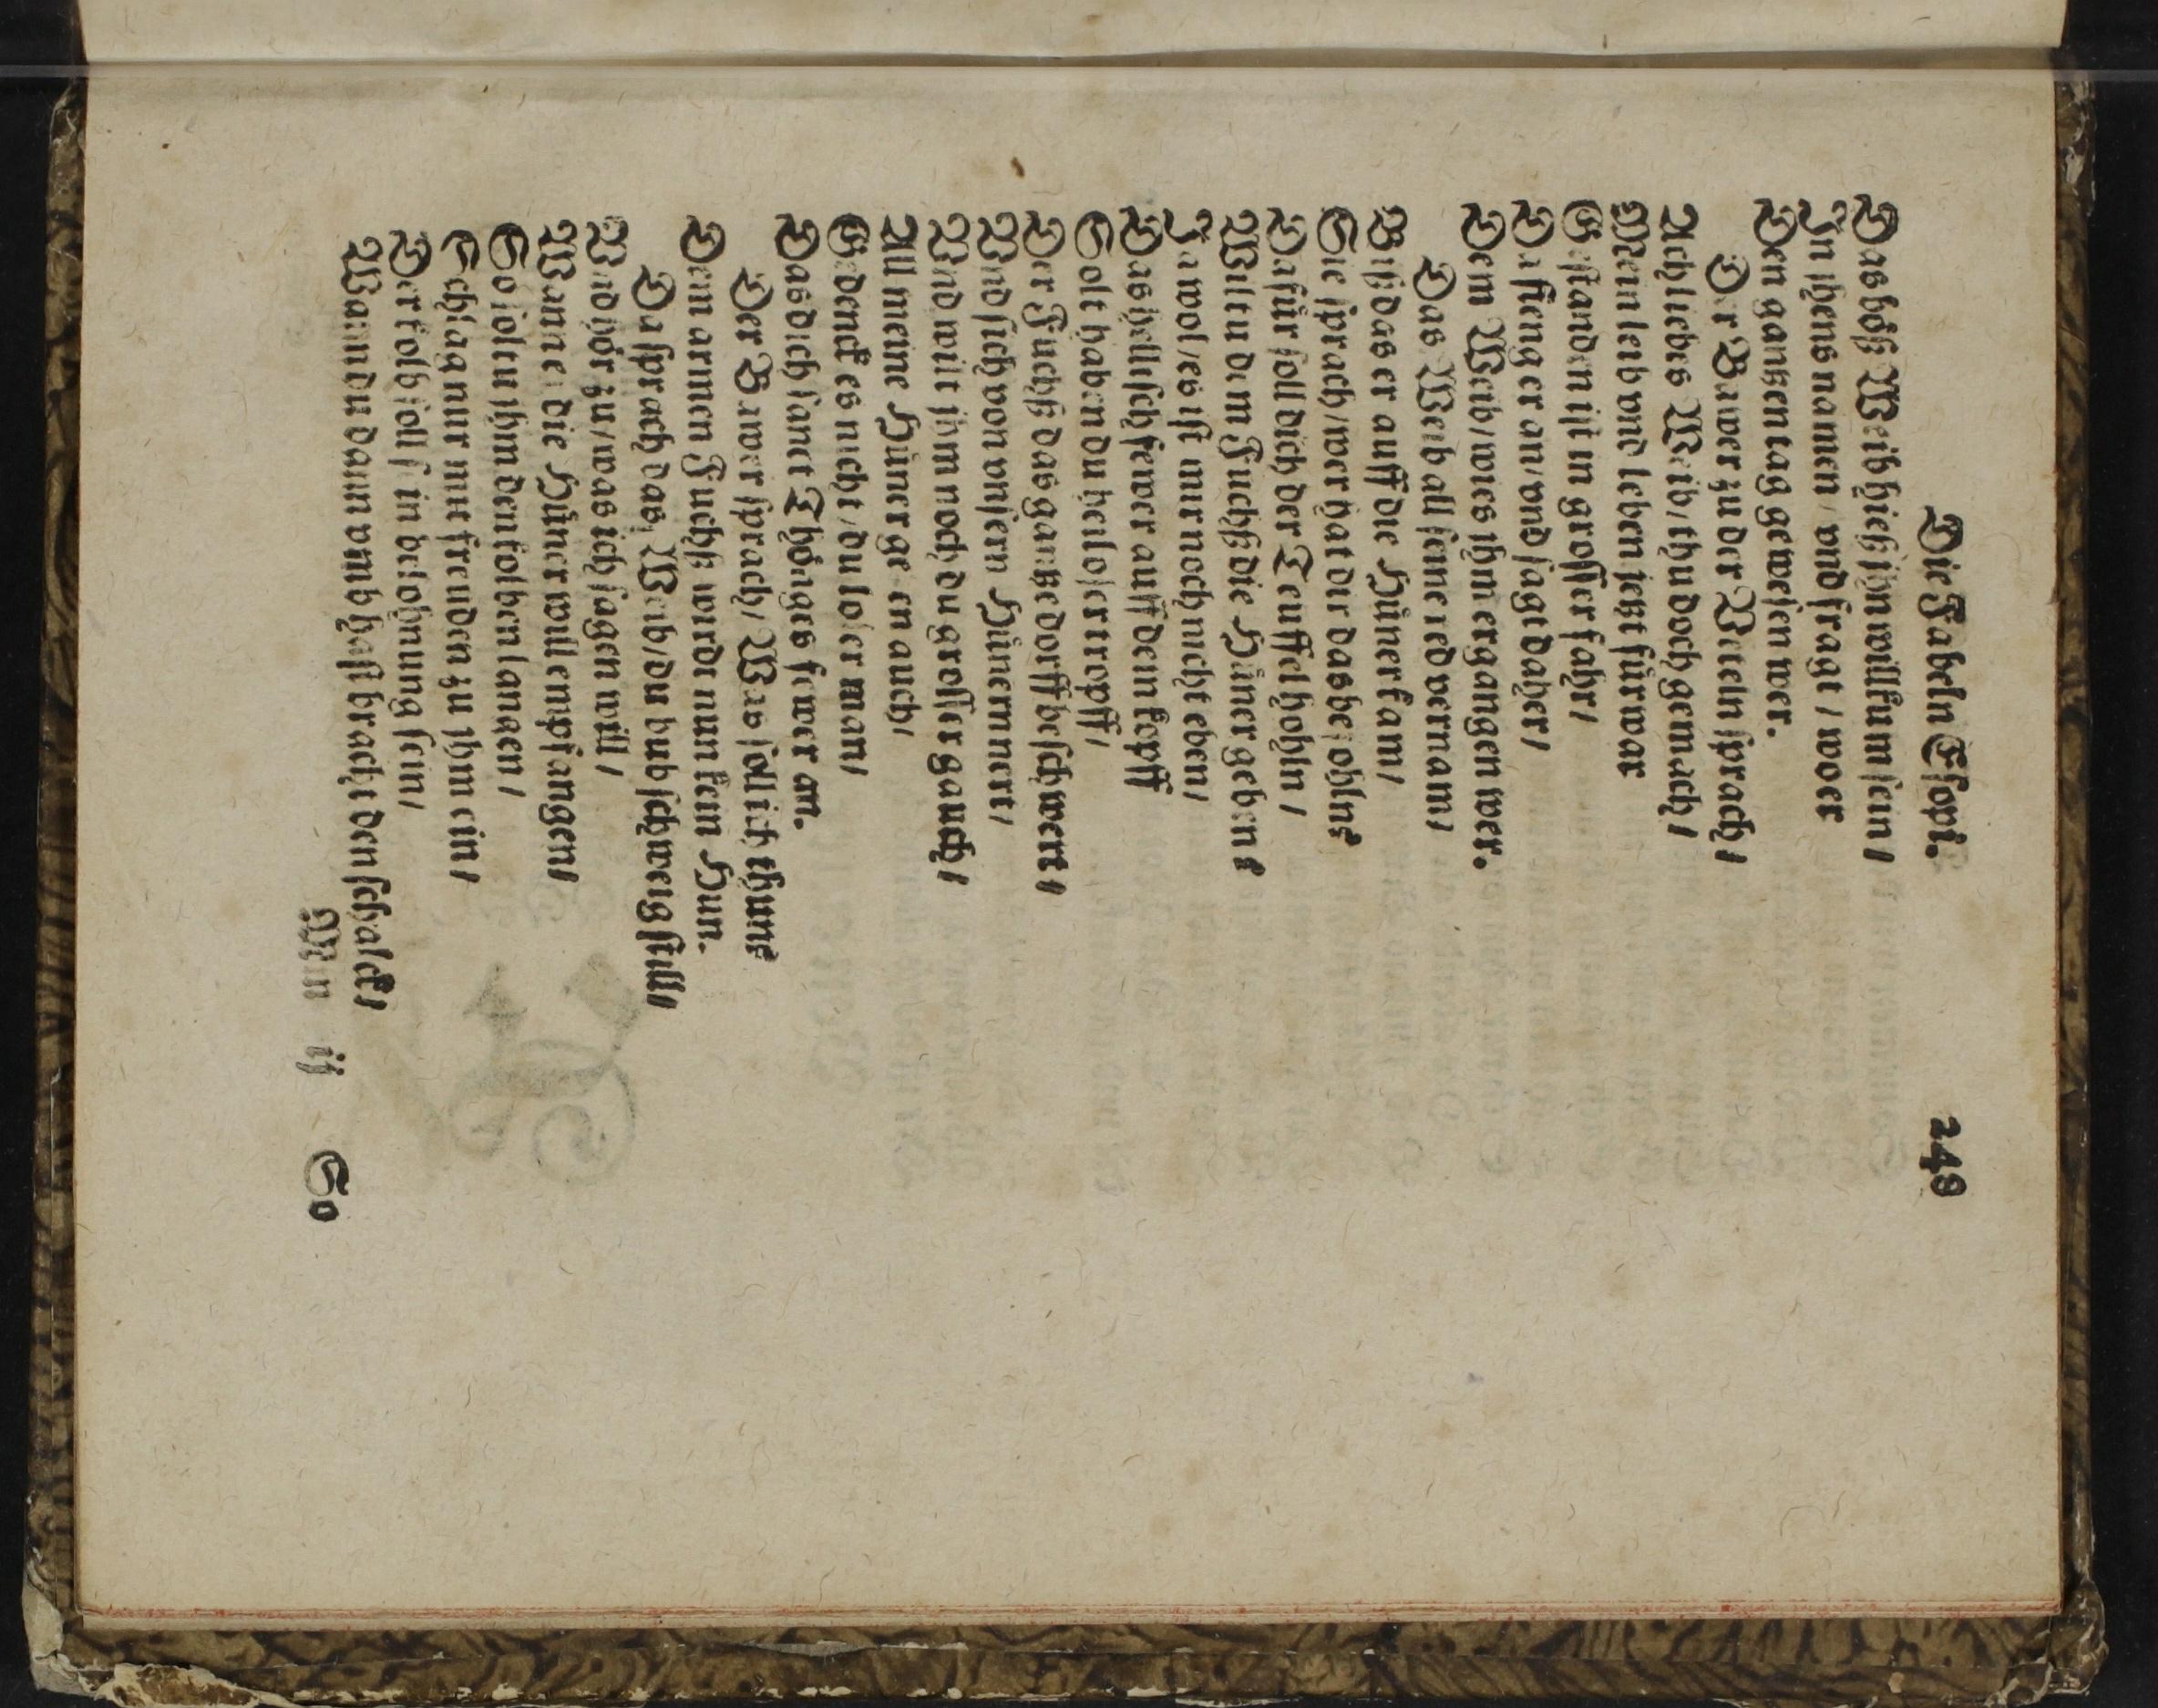 Die Fabeln Esopi. 248
Das böß Weib hieß jhn willkum sein/
Jn jhens namen/ vnd fragt/ wo er
Den gantzen tag gewesen wer.
Der Bawer zu der Vetteln sprach/
Ach liebes Weib/ thu doch gemach/
Mein leib vnd leben jetzt fürwar
Gestanden ist in grosser fahr/
Da fieng er an/ vnd sagt daher/
Dem Weib/ wies jhm ergangen wer.
Das Weib all seine red vernam/
Biß das er auff die Hüner kam/
Sie sprach/ wer hat dir das befohln?
Dafür soll dich der Teuffel hohln/
Wiltu dem Fuchß die Hüner geben?
Ja wol/ es ist mir noch nicht eben/
Das hellisch fewer auff dein kopff
Solt haben du heiloser tropff/
Der Fuchß das gantze dorff beschwert/
Vnd sich von vnsern Hünern nert/
Vnd wilt jhm noch du grosser gauch/
All meine Hüner geben auch/
Gedenck es nicht/ du loser man/
Das dich sanct Thönges fewer an.
Der Bawer sprach/ Was soll ich thun?
Dem armen Fuchß wirdt nun kein Hun.
Da sprach das Weib/ du bub schweig still/
Vnd hör zu/ was ich sagen will/
Wann er die Hüner will empfangen/
So soltu jhm den kolben langen/
Schlag nur mit freuden zu jhm ein/
Der kolb soll sein belohnung sein/
Wann du dann vmb hast bracht den schalck/
Nn ij So